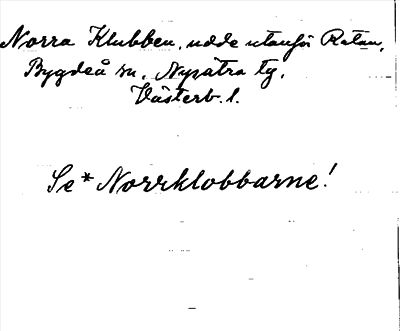 Norra Klubben, udde utanför Ratan,
Bygdeå sn, Nysätra tg,
Västerb. l.
Se * Norrklobbarne!